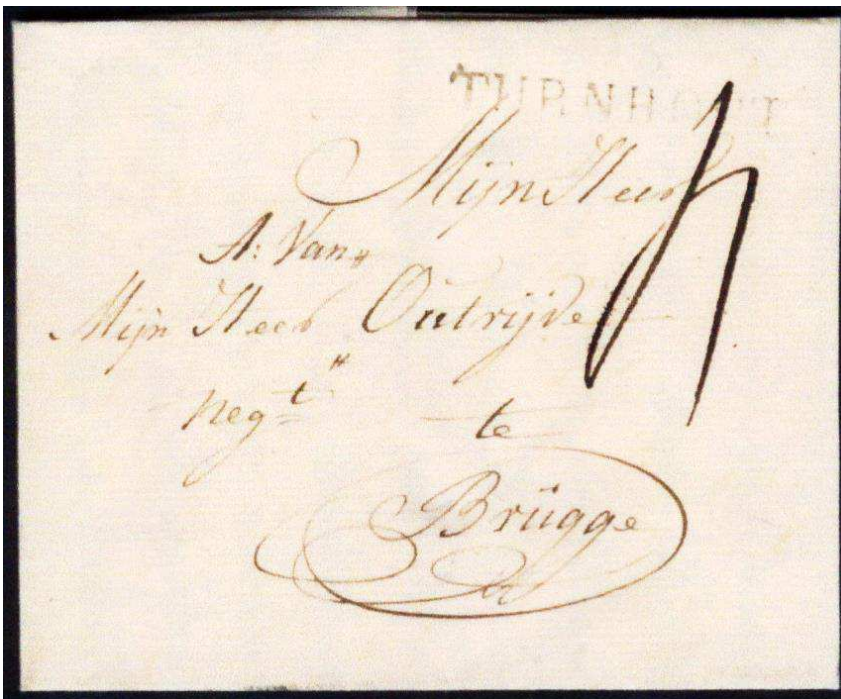 TURNHOUT
Mijn Heer
A: Van
Mijn Heer Outrijve
Negt
te
Brügge